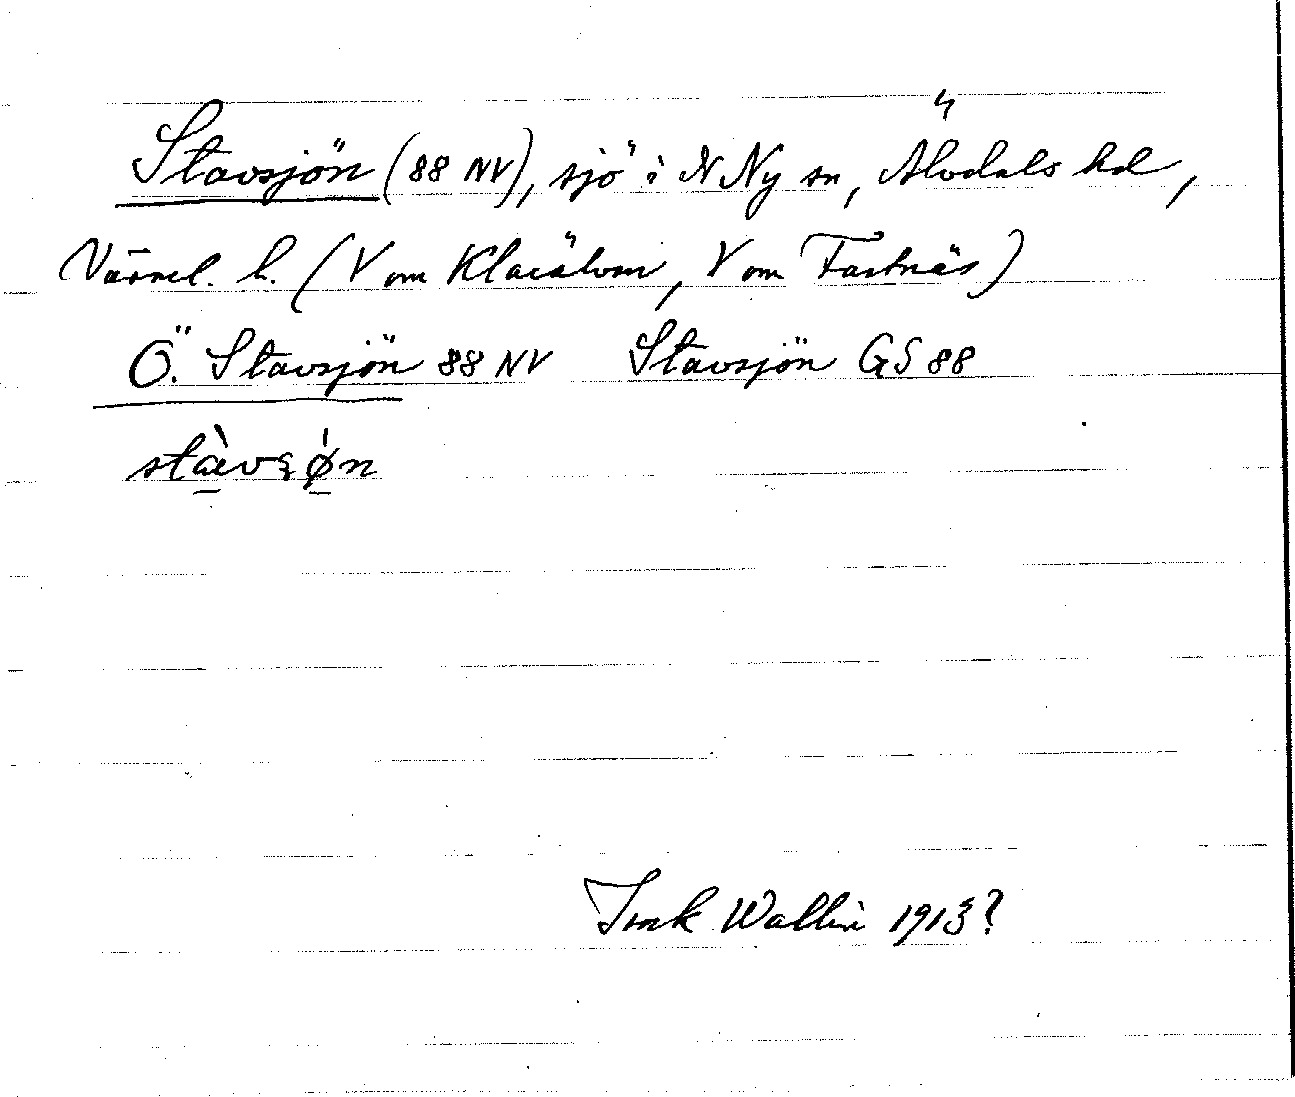 Stavsjön (88 NV), sjö i N Ny sn, Älvdals hd,
Värml. l. (V om Klarälven, V om Fastnäs)
Ö. Stavsjön 88 NV Stavsjön GS 88
stàvʂø̀n
Wallin 1913?